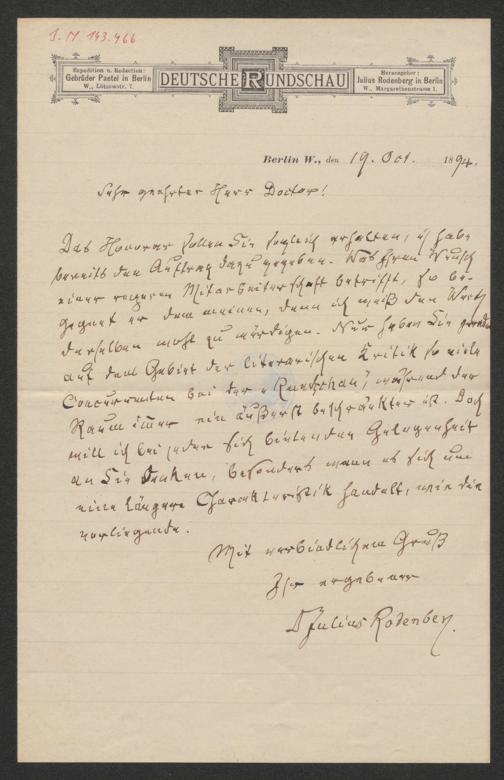 I. N 143.466
Expedition u. Redaction:
Gebrüder Paetel in Berlin
W., Lützowstr. 7.
DEUTSCHE RUNDSCHAU
Herausgeber:
Julius Rodenberg in Berlin
W., Margarethenstrasse 1.
Berlin W., den 19. Oct. 1894.
Sehr geehrter Herr Doctor!
Das Honorar sollen Sie sogleich erhalten, ich habe
bereits den Auftrag dazu gegeben. Was Ihren Wunsch
einer regeren Mitarbeiterschaft betrifft, so be-
gegnet er dem meinen, denn ich weiß den Werth
derselben wohl zu würdigen. Nur haben Sie gerade
auf dem Gebiet der literarischen Kritik so viele
Concurrenten bei der „Rundschau", während der
Raum immer ein äußerst beschränkter ist. Doch
will ich bei jeder sich bietenden Gelegenheit
an Sie denken, besonders wenn es sich um
eine längere Charakteristik handelt, wie die
vorliegende.
Mit verbindlichem Gruß
Ihr ergebener
Dr Julius Rodenberg.